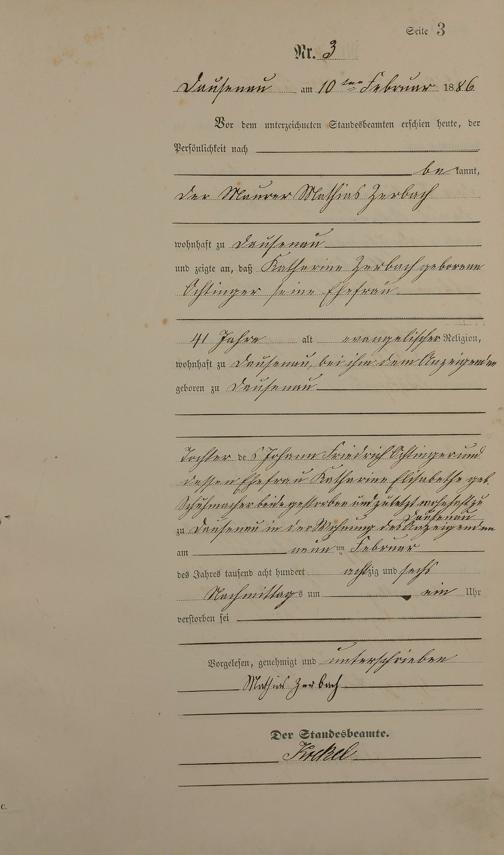 Seite 3
Nr. 3
Dausenau am 10ten Februar 1886
Vor dem unterzeichneten Standesbeamten erschien heute, der
Persönlichkeit nach
be kannt,
der Maurer Mathias Zerbach
wohnhaft zu Dausenau
und zeigte an, daß Katharina Zerbach geborene
Ochtinger seine Ehefrau
41 Jahre alt evangelischer Religion,
wohnhaft zu Dausenau, bei ihm dem Anzeigenden
geboren zu Dausenau
Tochter des Johann Friedrich Ochtinger und
dessen Ehefrau Katharina Elisabetha geb.
Schuhmacher beide gestorben und zuletzt wohnhaft zu
Dausenau
zu Dausenau in der Wohnung des Anzeigenden
am neunten Februar
des Jahres tausend acht hundert achtzig und sechs
Nachmittags um ein Uhr
verstorben sei
Vorgelesen, genehmigt und unterschrieben
Mathias Zerbach
Der Standesbeamte.
C.